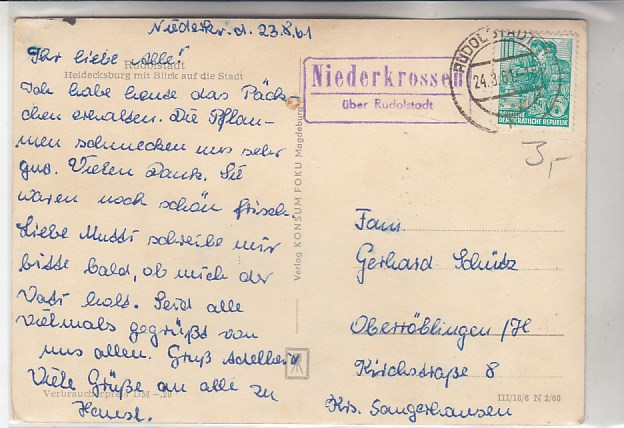 Niederkr. d. 23.8.61
Ihr liebe Alle!
Rudolstadt
Heidecksburg mit Blick auf die Stadt
Ich habe heute das Päck-
chen erhalten. Die Pflau-
men schmecken uns sehr
gut. Vielen Dank. Sie
waren noch schön frisch.
Liebe Mutti schreibe mir
bitte bald, ob mich der
Vati holt. Seid alle
vielmals gegrüßt von
uns allen. Gruß
Viele Grüße an alle zu
Verbraucherpreis DM -,20
Verlag KONSUM FOKU Magdeburg
Niederkrossen
über Rudolstadt
RUDOLSTADT
24.8.61
DEUTSCHE
DEMOKRATISCHE REPUBLIK
3,-
Fam.
Gerhard Schütz
Oberröblingen/H
Kirchstraße 8
Krs. Sangerhausen
III/18/6 N 2/60